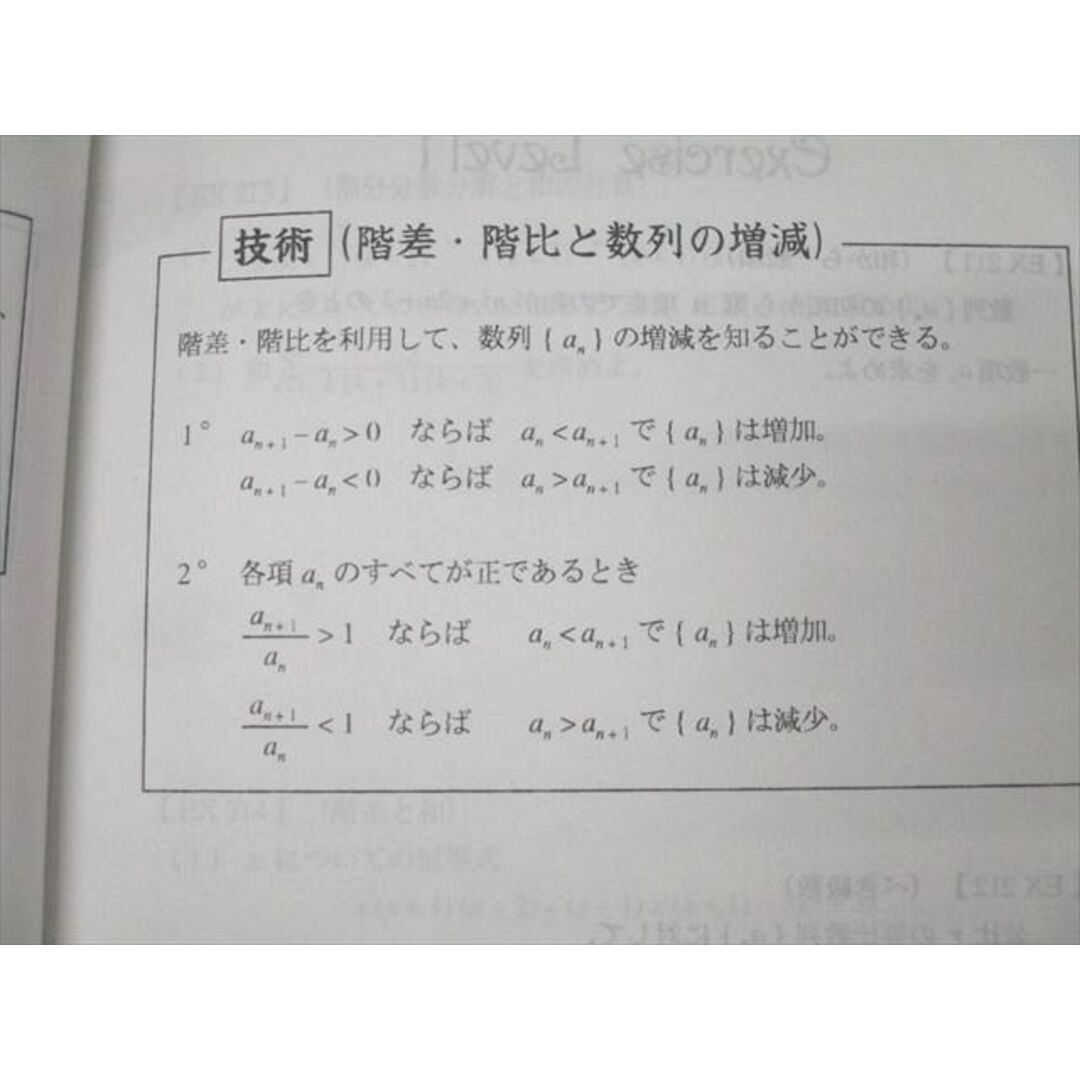 技術 (階差・階比と数列の増減)
階差・階比を利用して、数列 { aₙ } の増減を知ることができる。
1° aₙ₊₁ − aₙ > 0 ならば aₙ < aₙ₊₁ で { aₙ } は増加。
aₙ₊₁ − aₙ < 0 ならば aₙ > aₙ₊₁ で { aₙ } は減少。
2° 各項 aₙ のすべてが正であるとき
aₙ₊₁/aₙ > 1 ならば aₙ < aₙ₊₁ で { aₙ } は増加。
aₙ₊₁/aₙ < 1 ならば aₙ > aₙ₊₁ で { aₙ } は減少。